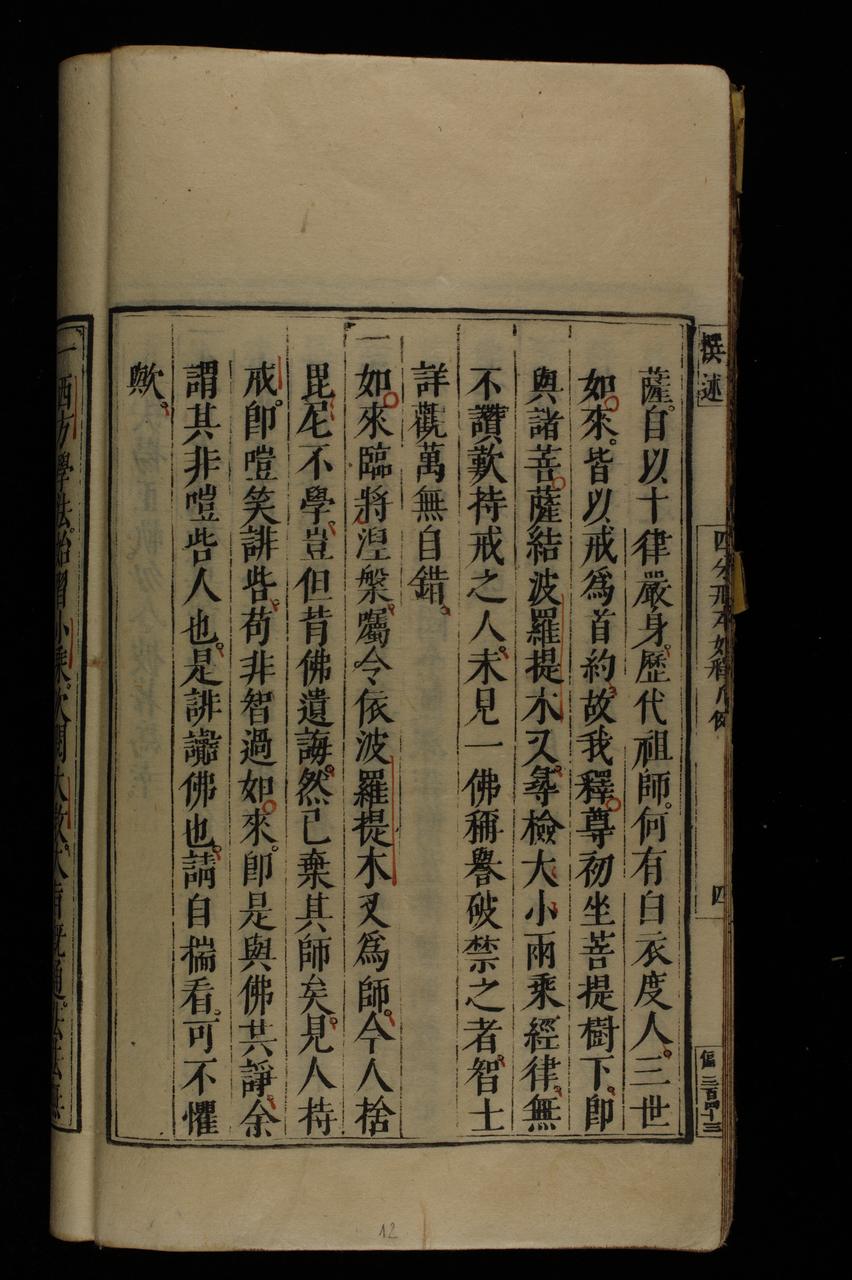 撰述
四分戒本如釋凡例
四
傷三百四十三
薩。自以十律嚴身。歷代祖師。何有白衣度人。三世
如來。皆以戒為首約。故我釋尊初坐菩提樹下。即
與諸菩薩結波羅提木叉。尋檢大小兩乘經律。無
不讚歎持戒之人。未見一佛稱譽破禁之者。智士
詳觀萬無自錯。
一如來臨將涅槃。囑令依波羅提木叉為師。今人捨
毘尼不學。豈但背佛遺誨。然已棄其師矣。見人持
戒。即嘡笑誹呰。苟非智過如來。即是與佛共諍。余
謂其非嘡呰人也。是誹謗佛也。請自揣看。可不懼
歟。
一西方學法。始習小乘。次閱大教。大旨既通。法法無